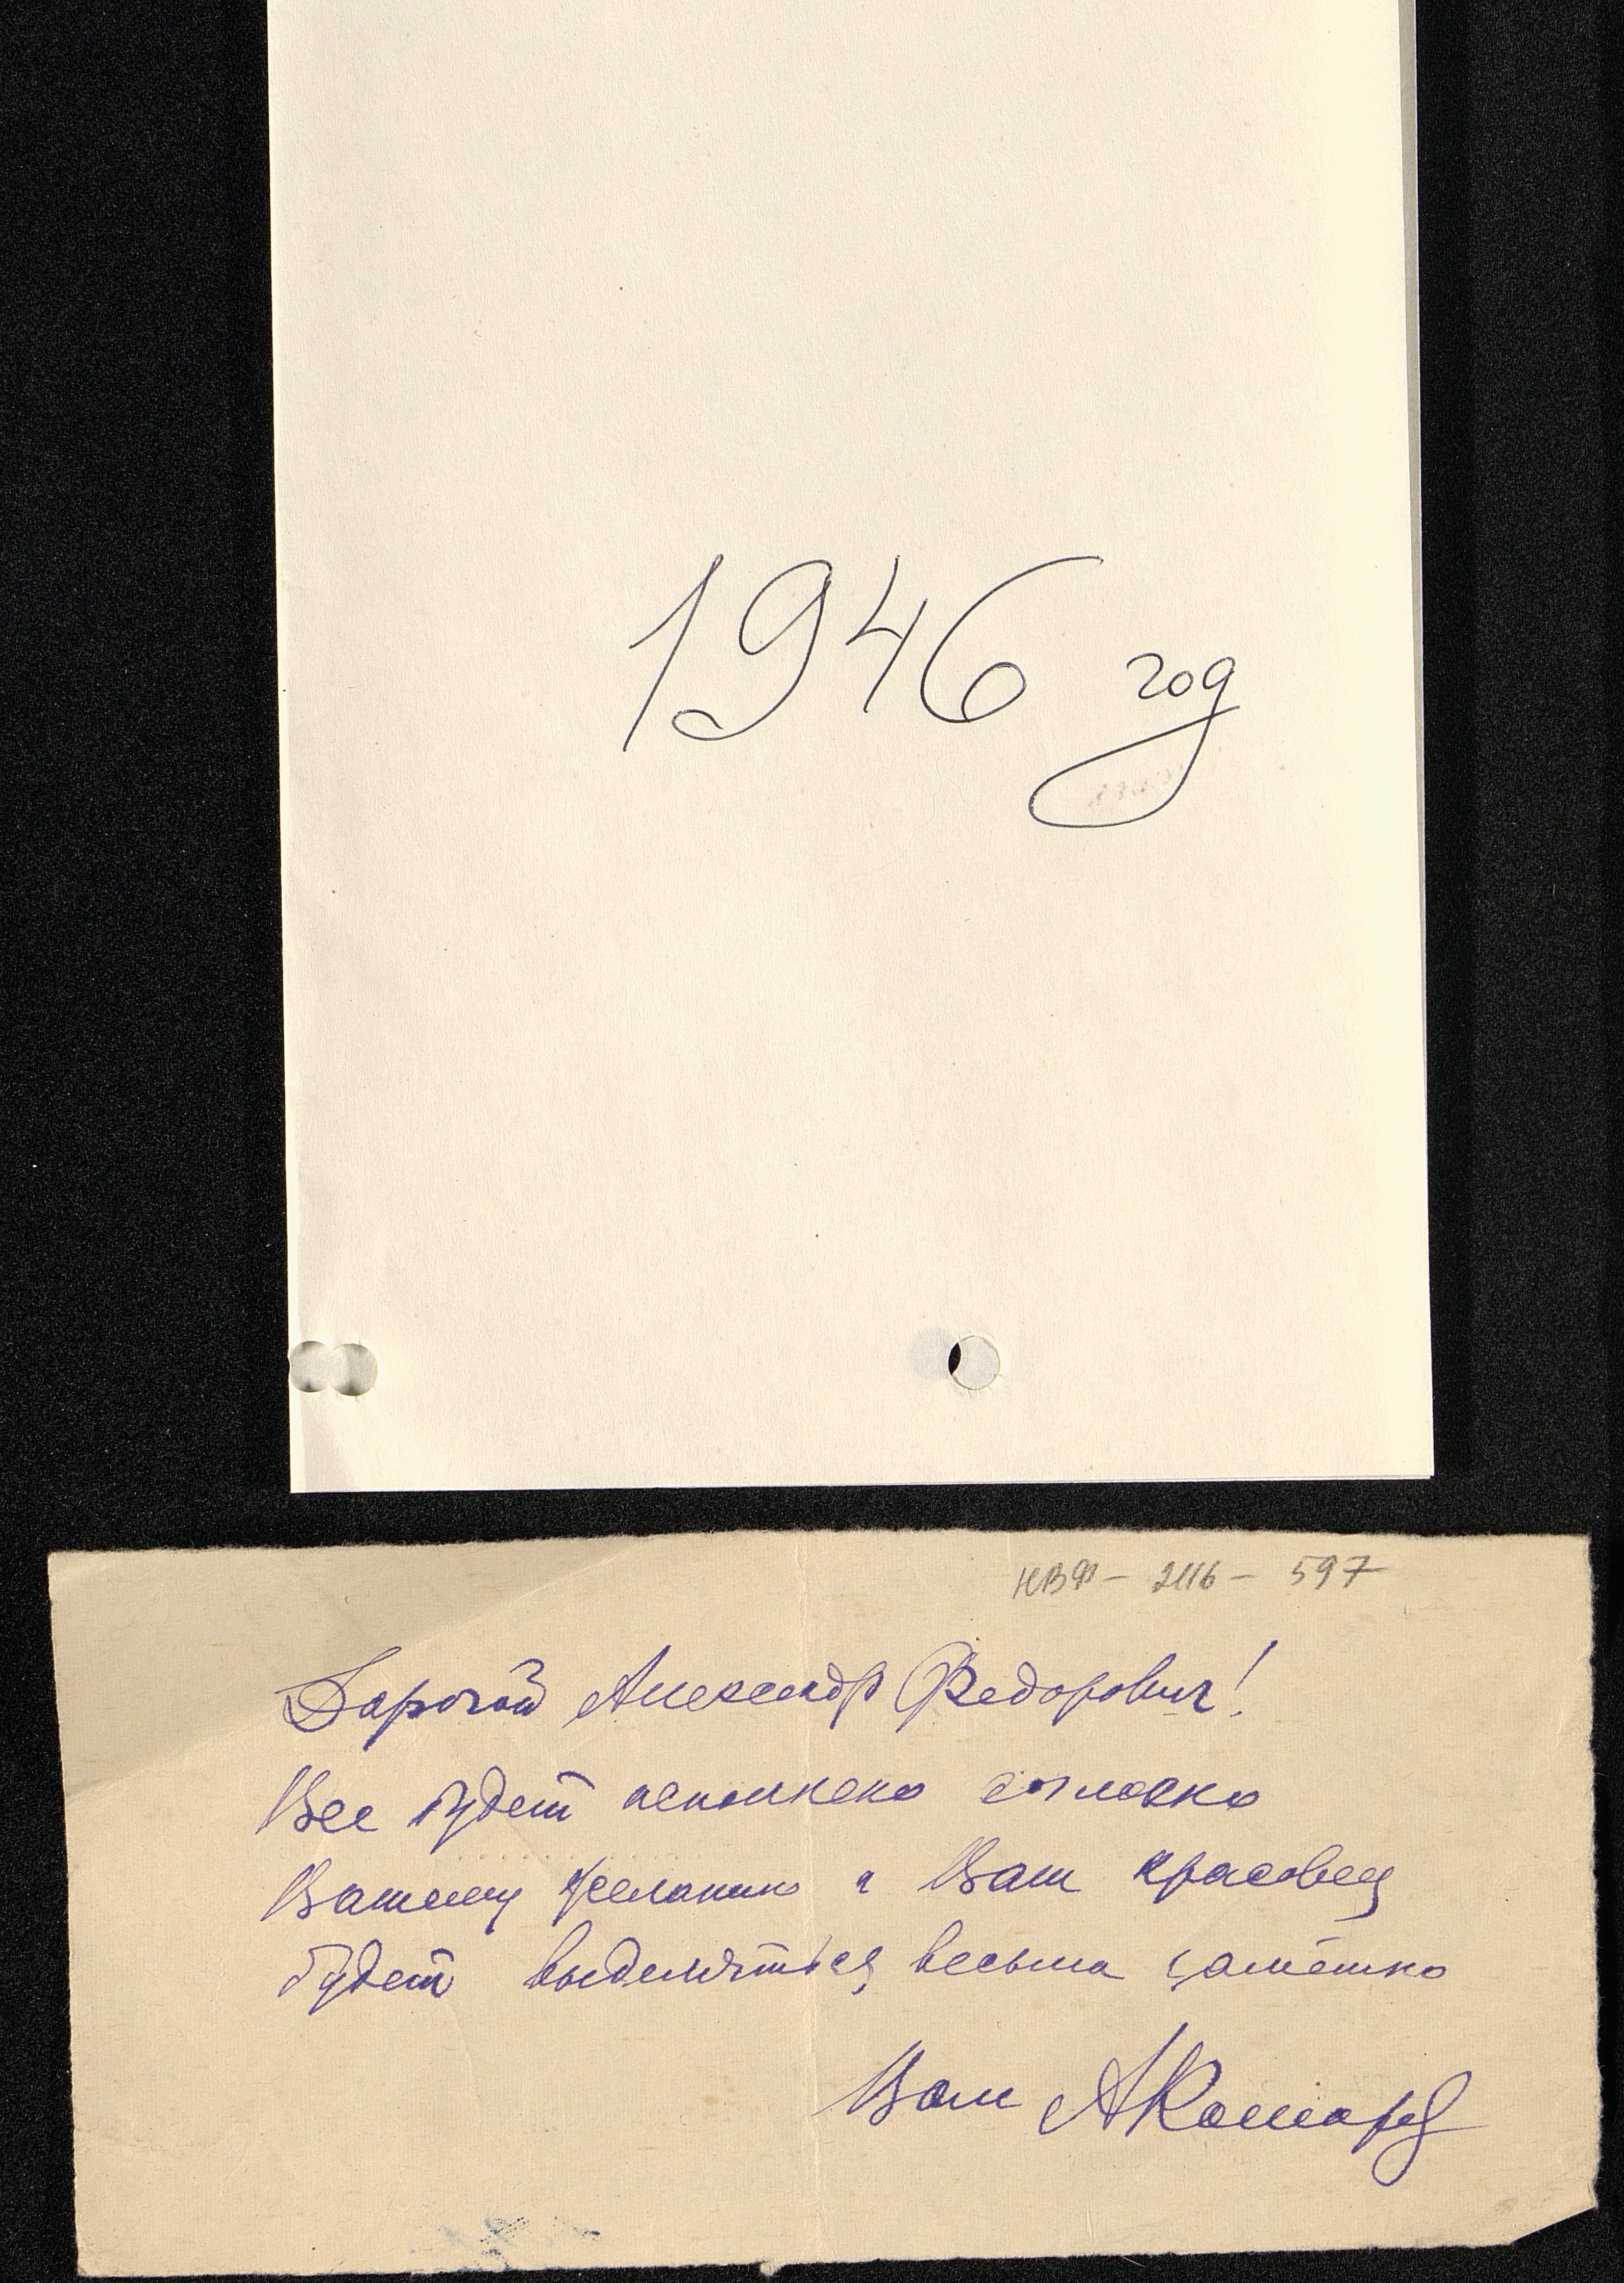 1946 год
КВФ - 2116 - 597
Дорогой Александр Федорович!
Все будет исполнено согласно
Вашему желанию и Ваш красавец
будет выделяться весьма заметно
Ваш